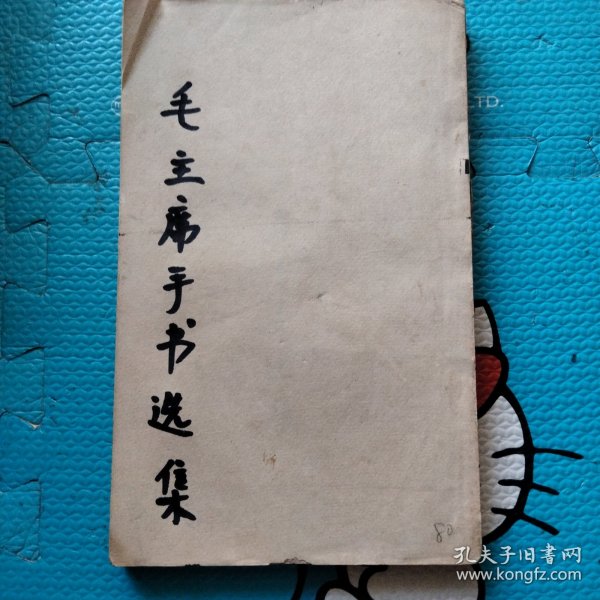 毛主席手书选集
LTD.
80
孔夫子旧书网
www.kongfz.com